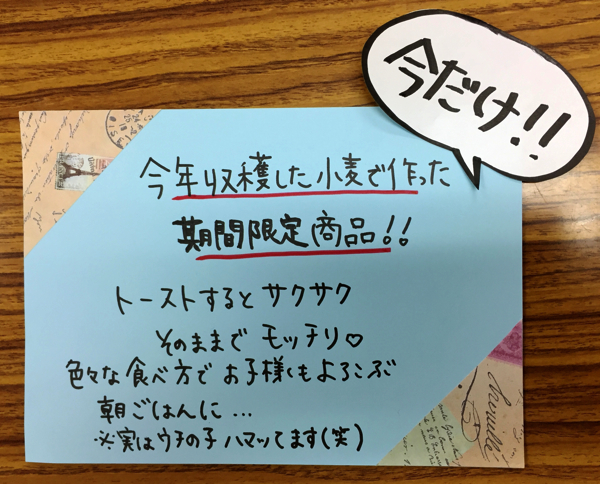 今だけ!!
今年収穫した小麦で作った
期間限定商品!!
トーストするとサクサク
そのままでモッチリ♡
色々な食べ方でお子様もよろこぶ
朝ごはんに…
※実はウチの子ハマッてます(笑)